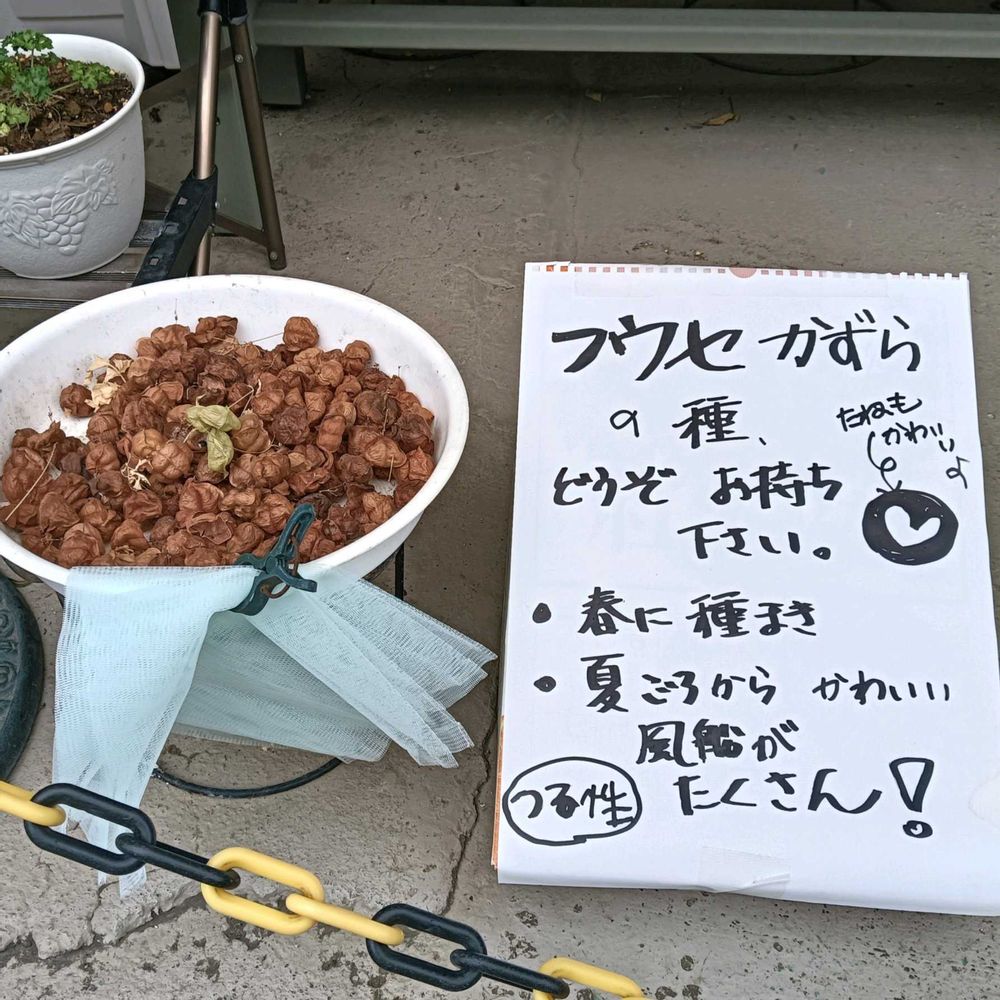 フウセかずら
の種、
どうぞ お持ち
下さい。
たねも
かわいいよ
・春に種まき
・夏ごろから かわいい
風船が
たくさん!
つる性